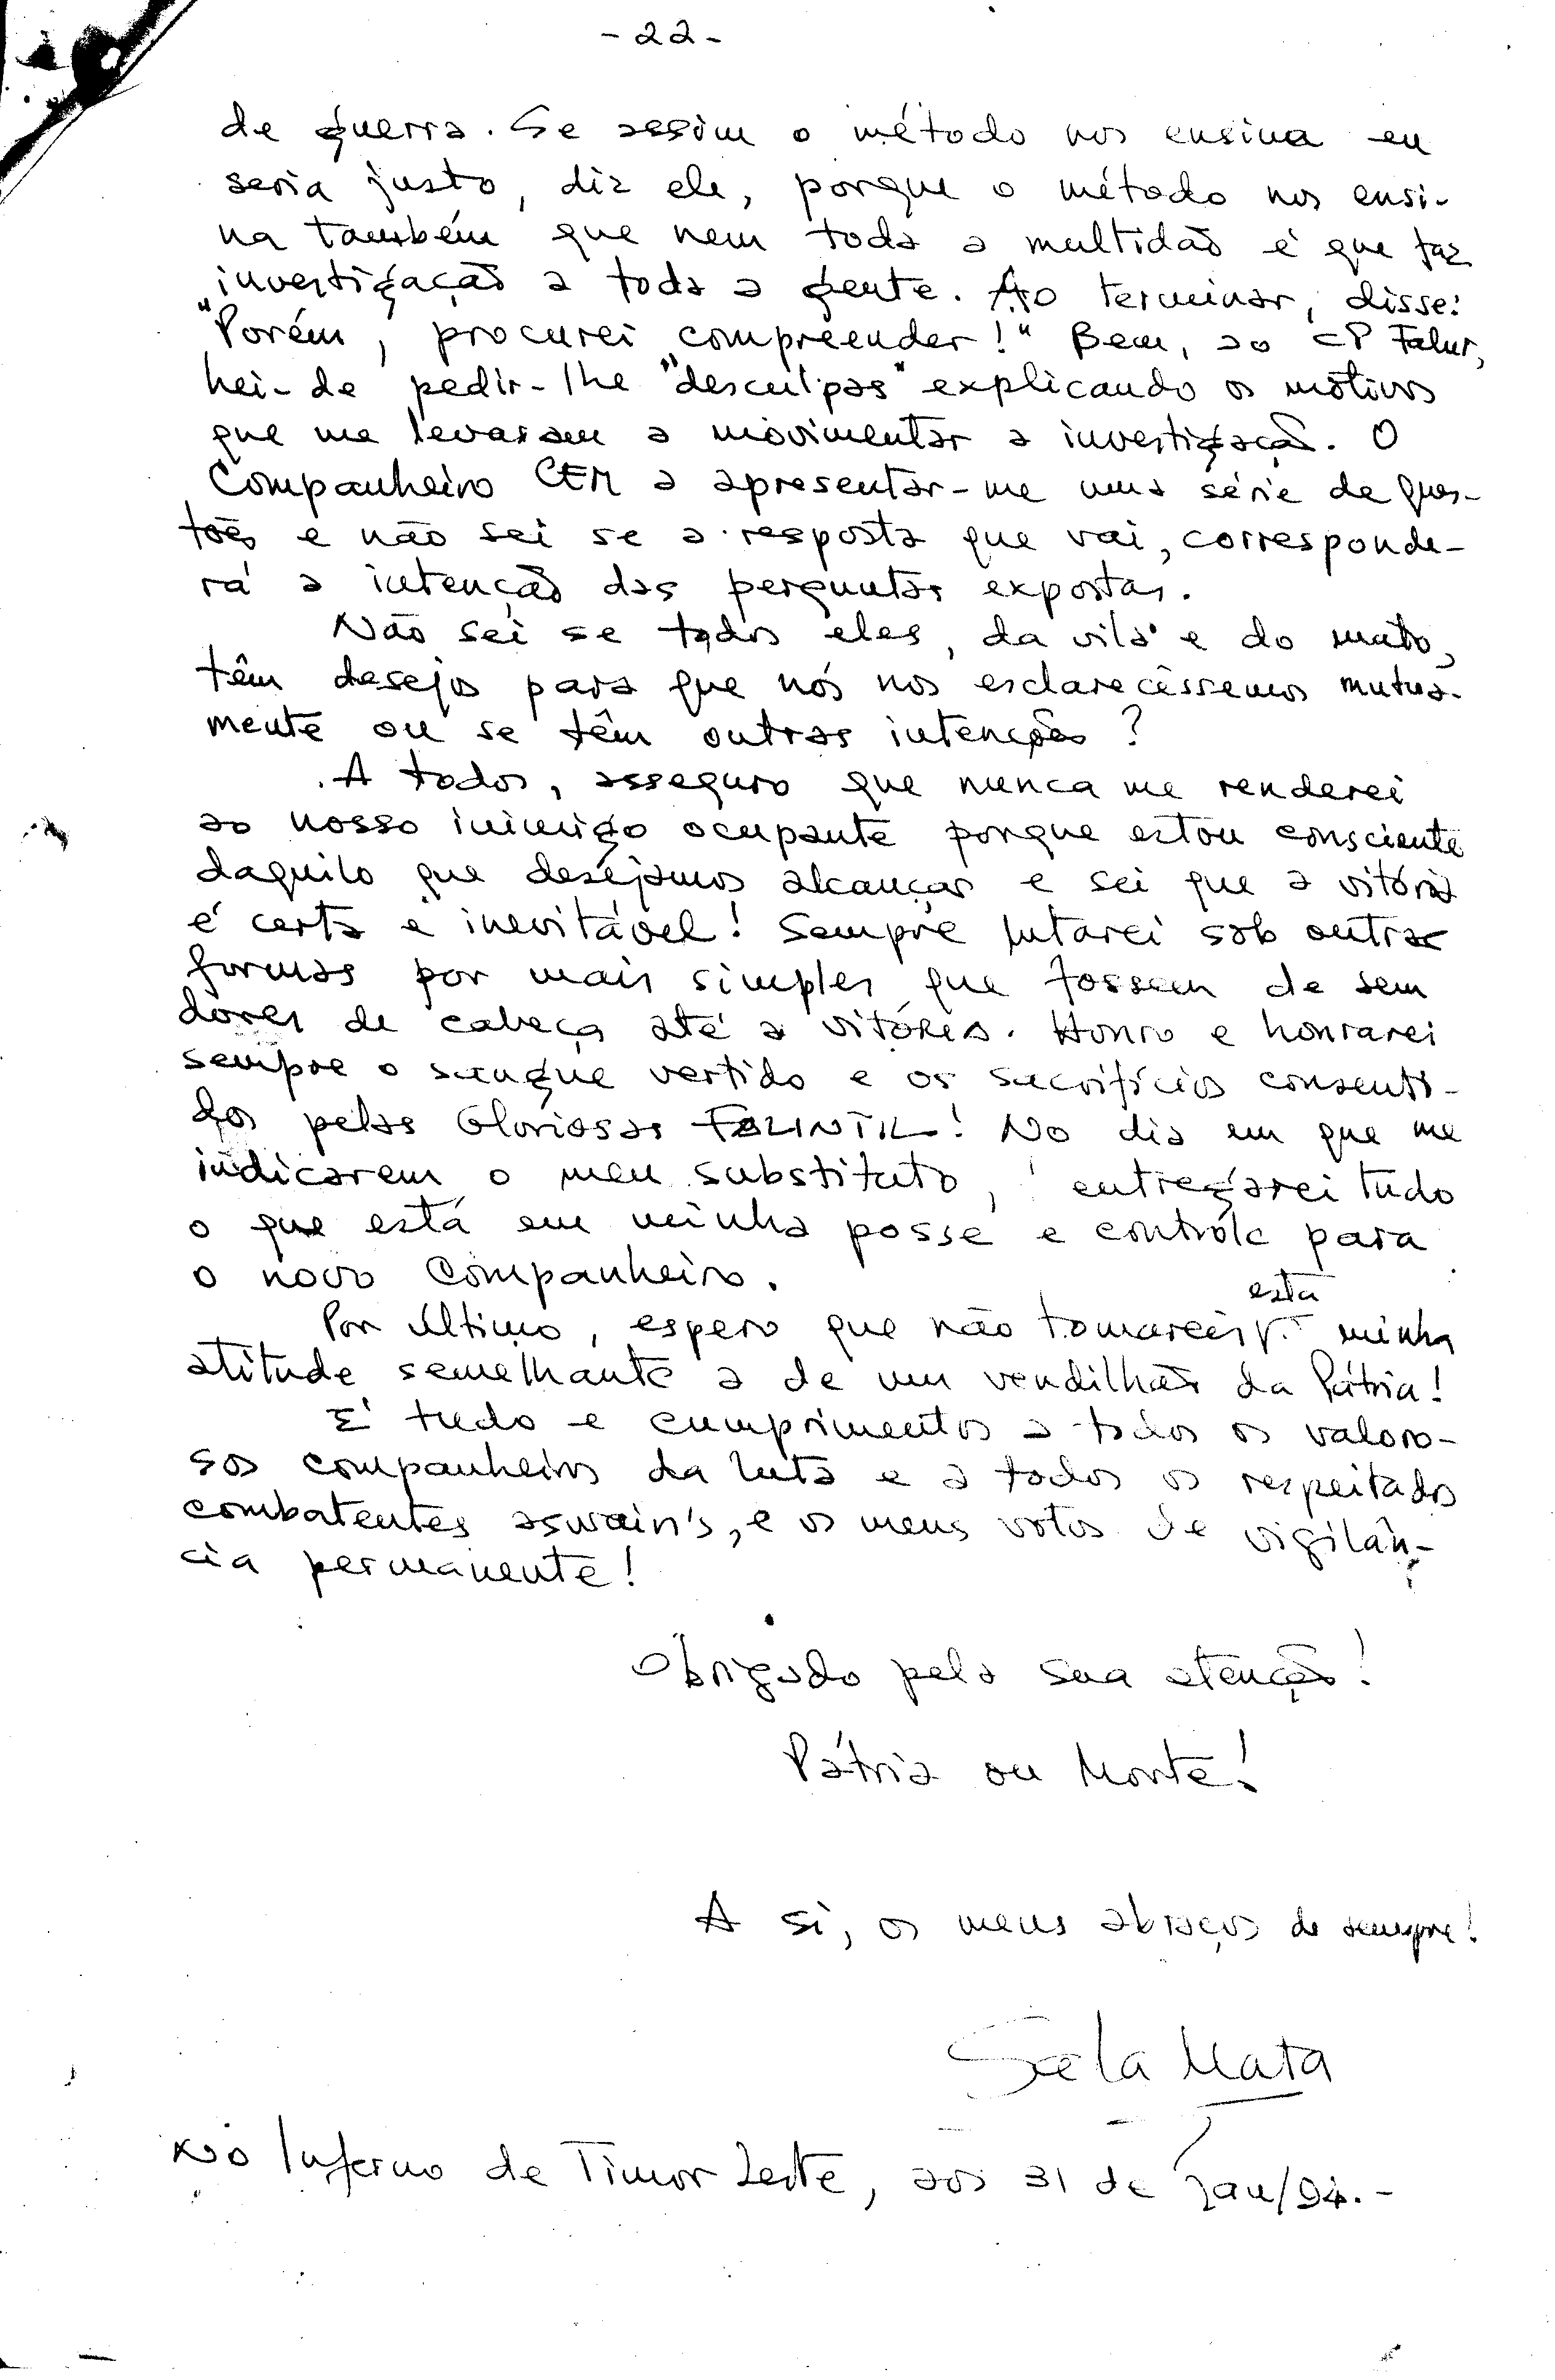 - 22 -
de guerra. Se assim o método nos ensina eu
seria justo, diz ele, porque o método nos ensi-
na também que nem toda a multidão é que faz
investigação a toda a gente. Ao terminar, disse:
"Porém, procurei compreender!" Bem, ao CP Falur,
hei-de pedir-lhe "desculpas" explicando os motivos
que me levaram a movimentar a investigação. O
Companheiro CEM a apresentar-me uma série de ques-
tões e não sei se a resposta que vai, corresponde-
rá a intenção das perguntas expostas.
Não sei se todos eles, da vila e do mato,
têm desejos para que nós nos esclarecêssemos mutua-
mente ou se têm outras intenções?
A todos, asseguro que nunca me renderei
ao nosso inimigo ocupante porque estou consciente
daquilo que desejamos alcançar e sei que a vitória
é certa e inevitável! Sempre lutarei sob outras
formas por mais simples que fossem de sem
dores de cabeça até a vitória. Honro e honrarei
sempre o sangue vertido e os sacrifícios consenti-
dos pelas Gloriosas FALINTIL! No dia em que me
indicarem o meu substituto, entregarei tudo
o que está em minha posse e contrôle para
o novo Companheiro.
esta
Por último, espero que não tomareis minha
atitude semelhante a de um vendilhão da Pátria!
É tudo e cumprimentos a todos os valoro-
sos companheiros da luta e a todos os respeitados
combatentes aswain's, e os meus votos de vigilân-
cia permanente!
Obrigado pela sua atenção!
Pátria ou Morte!
A si, os meus abraços de sempre!
Sela Mata
No Inferno de Timor Leste, aos 31 de Jan/94.-